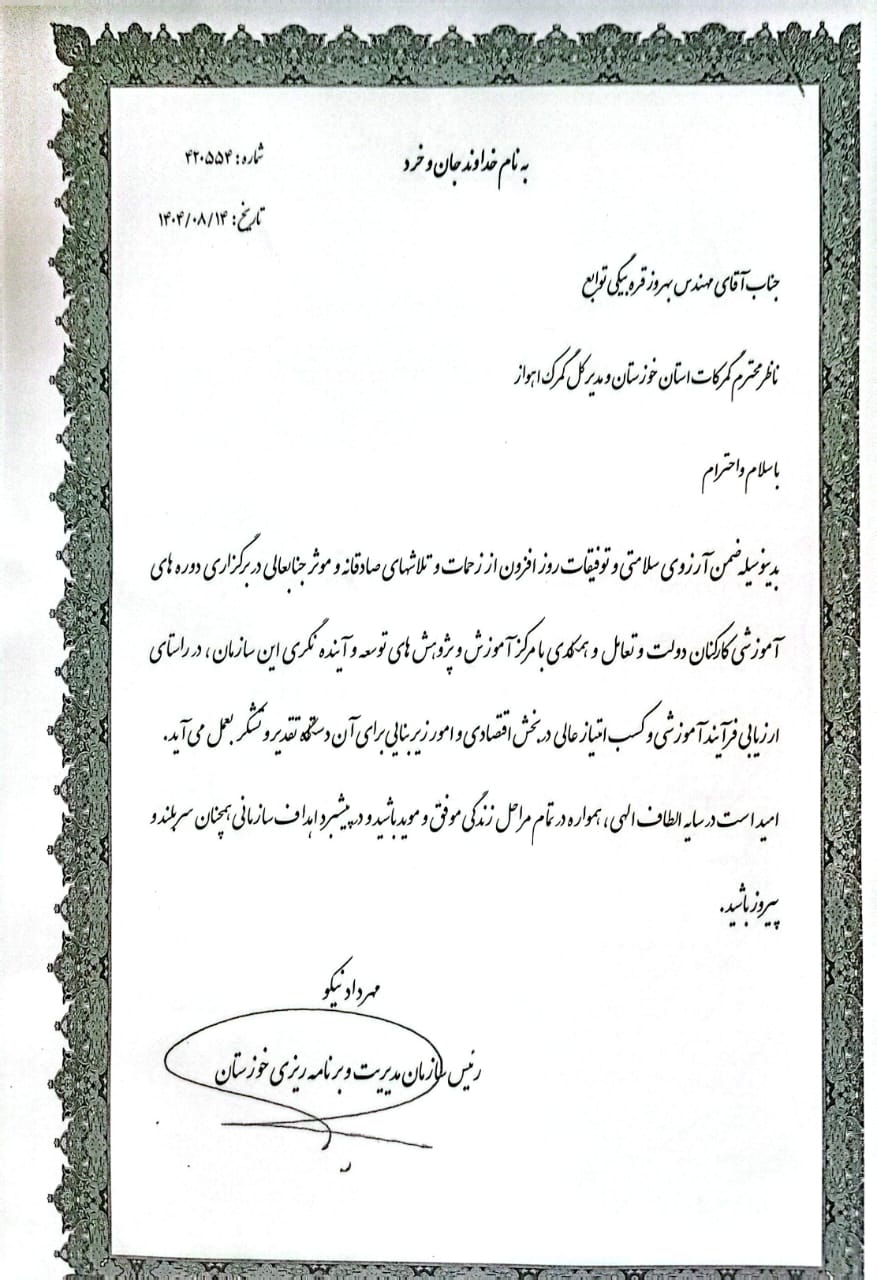 به نام خداوند جان و خرد
شماره: ۴۲۰۵۵۴
تاریخ: ۱۴۰۴/۰۸/۱۴
جناب آقای مهندس بهروز قره بیگی توابع
ناظر محترم گمرکات استان خوزستان و مدیر کل گمرک اهواز
با سلام و احترام
بدینوسیله ضمن آرزوی سلامتی و توفیقات روز افزون از زحمات و تلاشهای صادقانه و موثر جنابعالی در برگزاری دوره های
آموزشی کارکنان دولت و تعامل و همکاری با مرکز آموزش و پژوهش های توسعه و آینده نگری این سازمان، در راستای
ارزیابی فرآیند آموزشی و کسب امتیاز عالی در بخش اقتصادی و امور زیربنایی برای آن دستگاه تقدیر و تشکر بعمل می آید.
امید است در سایه الطاف الهی، همواره در تمام مراحل زندگی موفق و موید باشید و در پیشبرد اهداف سازمانی همچنان سربلند و
پیروز باشید.
مهرداد نیکو
رئیس سازمان مدیریت و برنامه ریزی خوزستان